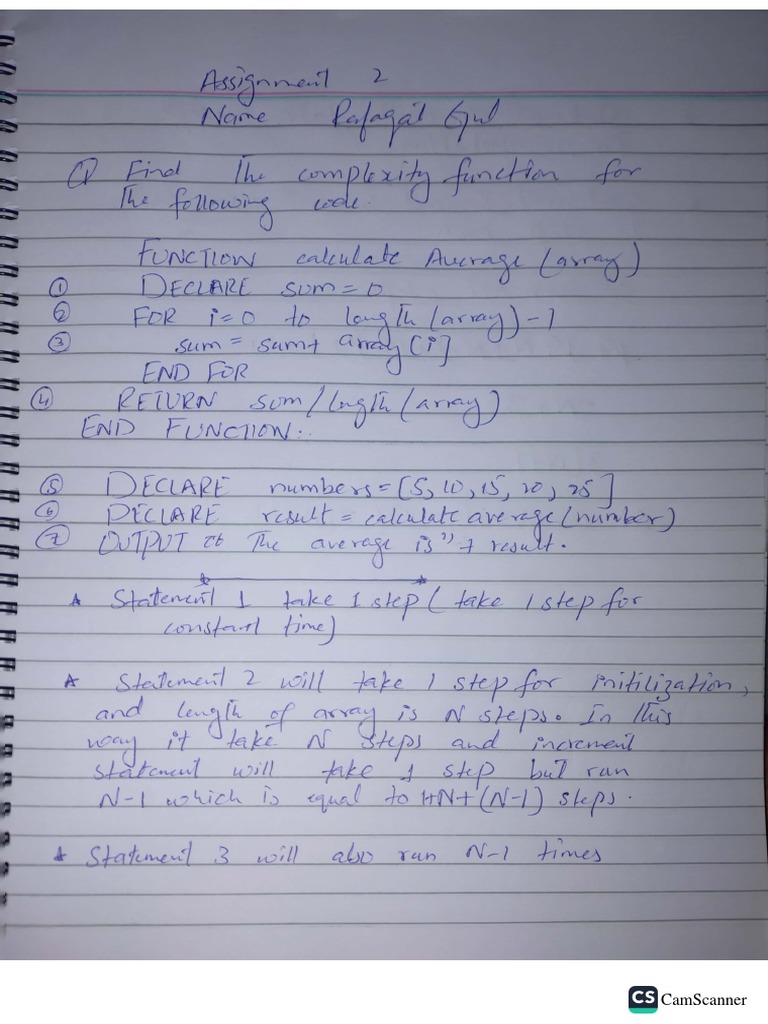 Assignment 2
Name Rafaqat Gul
Q Find The complexity function for
The following code.
FUNCTION calculate Average (array)
① DECLARE sum = 0
② FOR i=0 to length (array) - 1
③ sum = sum+ array [i]
END FOR
④ RETURN sum / lngth (array)
END FUNCTION..
⑤ DECLARE numbers = [5, 10, 15, 20, 25]
⑥ DECLARE result = calculate average (number)
⑦ OUTPUT The average is" + result.
* Statement 1 take 1 step ( take 1 step for
constant time)
* Statement 2 will take 1 step for initilization,
and length of array is N steps. In this
way it take N steps and increment
statement will take 1 step but run
N-1 which is equal to 1+N+(N-1) steps.
* Statement 3 will also run N-1 times
CS CamScanner